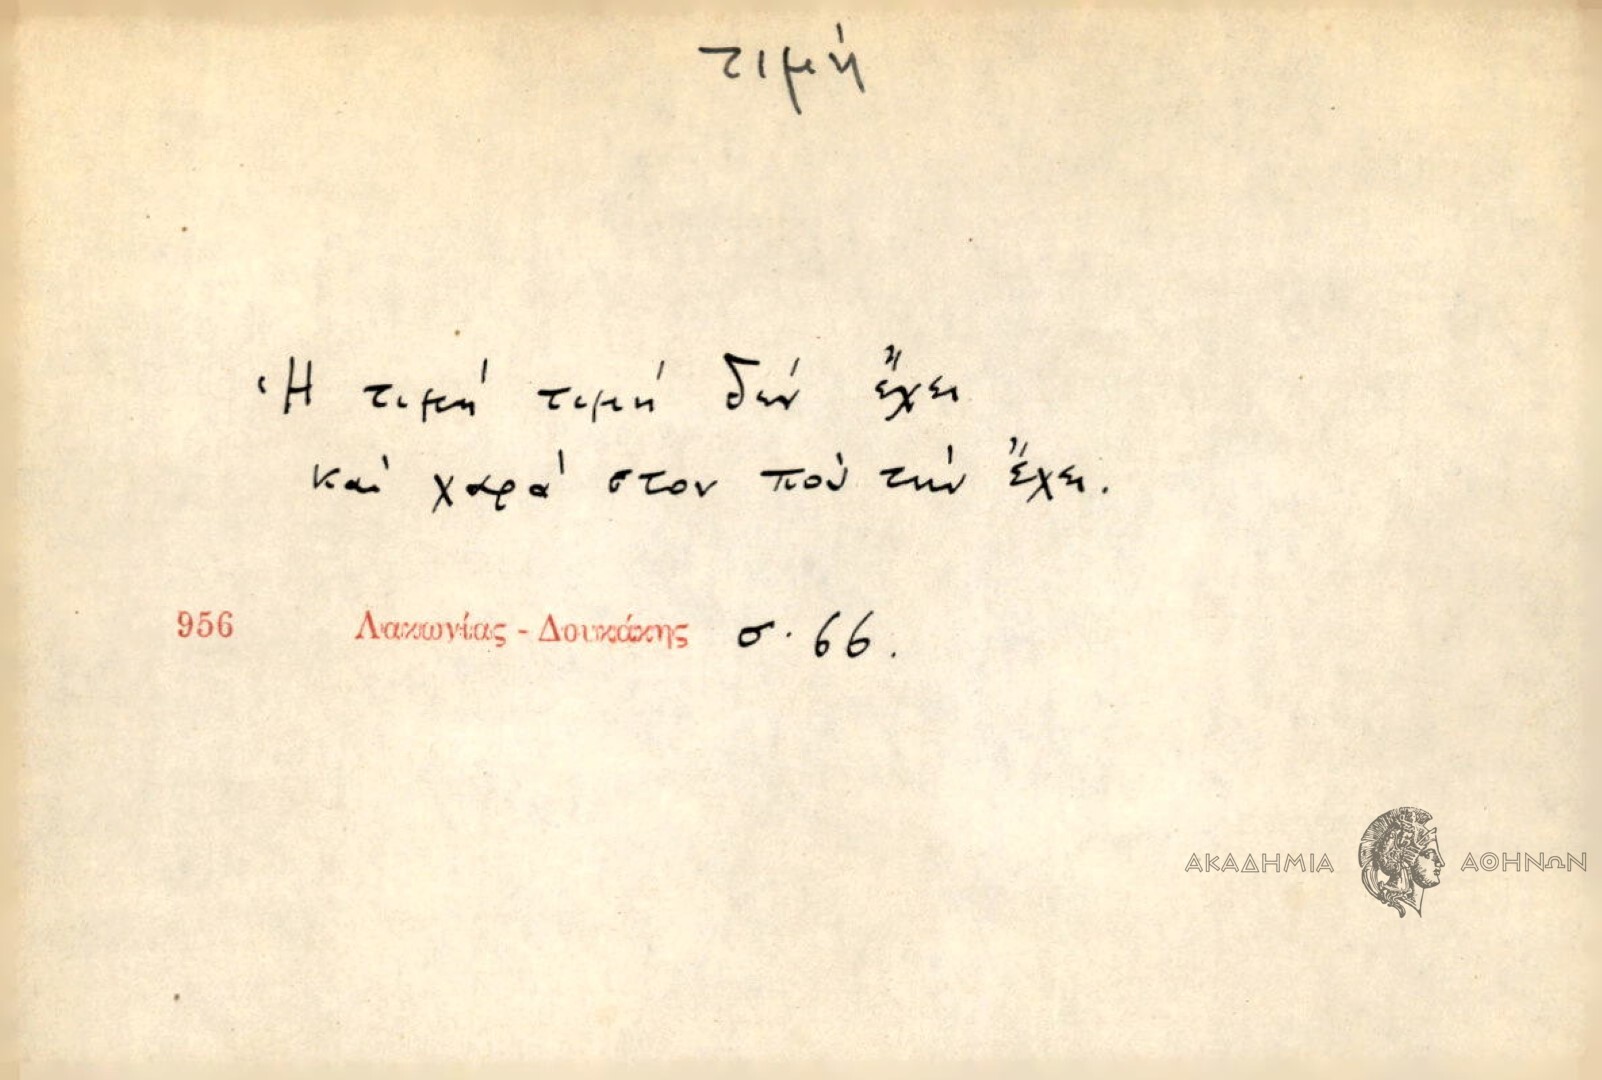 τιμή
Ἡ τιμή τιμή δέν ἔχει
καί χαρά στον πού τήν ἔχει.
956 Λακωνίας - Δουκάκης σ. 66.
ΑΚΑΔΗΜΙΑ ΑΘΗΝΩΝ